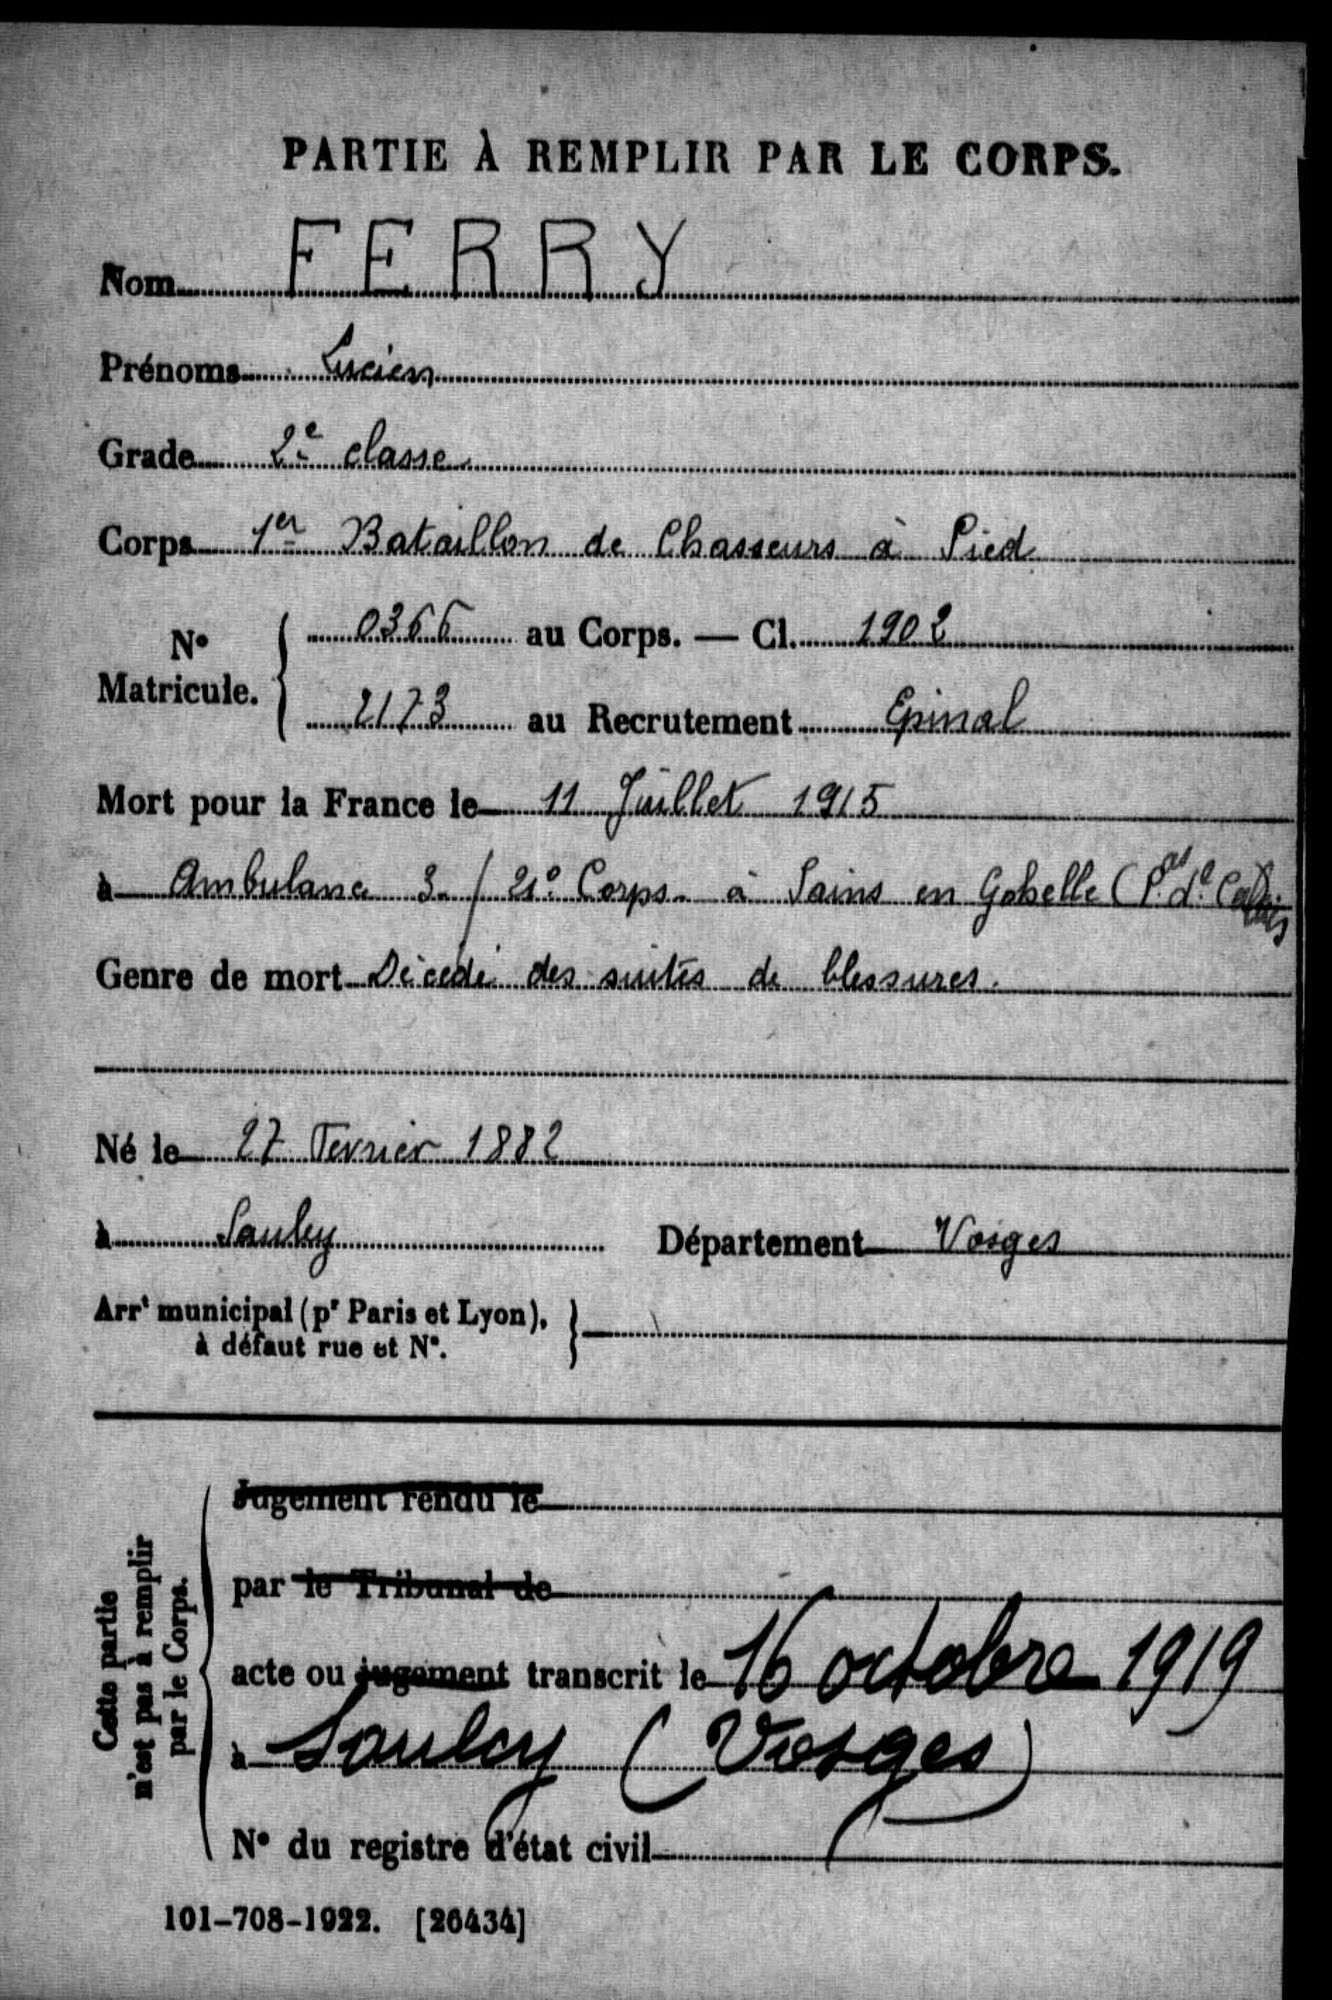 PARTIE À REMPLIR PAR LE CORPS.
Nom FERRY
Prénoms Lucien
Grade 2e classe
Corps 1er Bataillon de Chasseurs à Pied
N° Matricule. { 0366 au Corps. — Cl. 1902
2173 au Recrutement Epinal
Mort pour la France le 11 Juillet 1915
à Ambulance 3 / 21e Corps. à Sains en Gohelle (Pas de Calais
Genre de mort Décédé des suites de blessures.
Né le 27 Fevrier 1882
à Saulcy Département Vosges
Arrt municipal (pr Paris et Lyon),
à défaut rue et N°.
Cette partie
n'est pas à remplir
par le Corps.
Jugement rendu le
par le Tribunal de
acte ou jugement transcrit le 16 octobre 1919
à Saulcy (Vosges)
N° du registre d'état civil
101-708-1922. [26434]